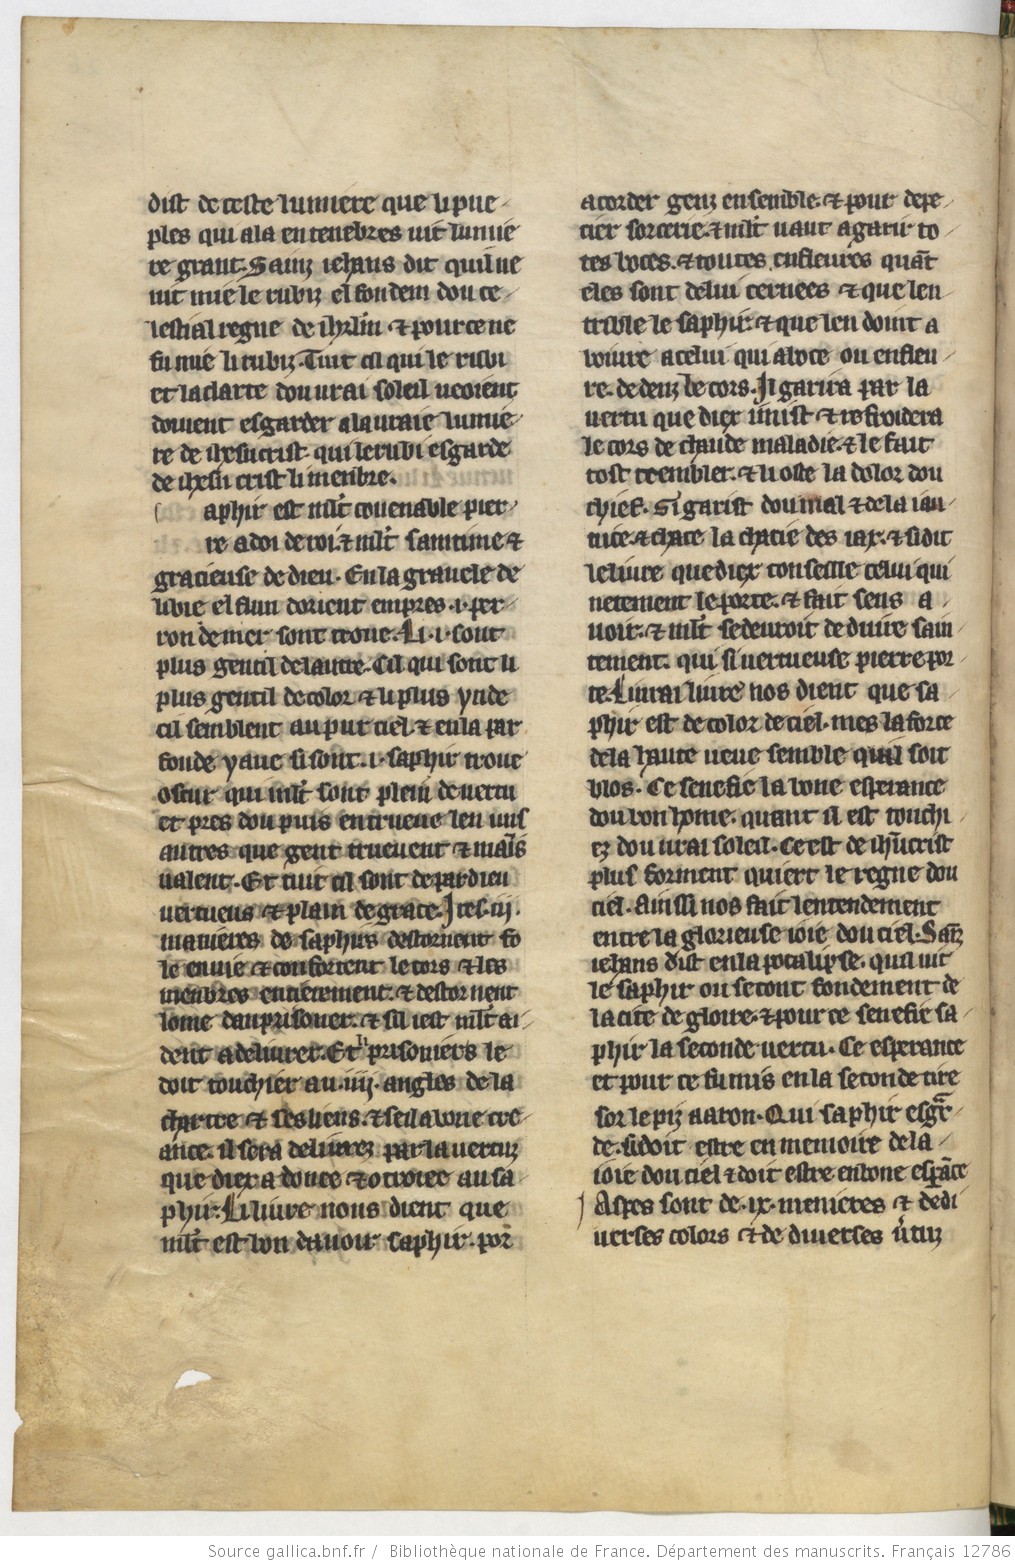 dist de ceste lumiere que li pue-
ples qui ala en tenebres vit lumie
re grant. Sainz iehans dit quil ne
vit mie le rubiz el fondem dou ce-
lestial regne de ihrlm ⁊ pour ce ne
fu mie li rubiz. Tuit cil qui le risbi
et la clarte dou vrai soleil veoient
doivent esgarder a la vraie lumie-
re de ihesucrist. qui le rubi esgarde
de ihesu crist li menbre.
aphir est mlt covenable pier-
re a doi de roi. ⁊ mlt saintime ⁊
gracieuse de dieu. En la gravele de
libie el flun dorient empres .i. per-
ron de mer sont trove. Li .i. sont
plus gentil de lautre. Cil qui sont li
plus gentil de color ⁊ li plus ynde
cil semblent au pur ciel. ⁊ en la par
fonde yaue si sont .i. saphir trove
oscur qui mlt sont plein de vertu
et pres dou puis en trueve len uns
autres que gent truevent ⁊ mains
valent. Et tuit cil sont de par dieu
vertueus ⁊ plain de grace. Ices .iij.
manieres de saphirs destornent fo
le envie ⁊ confortent le cors ⁊ les
menbres entierement. ⁊ destornent
lome danprisoner. ⁊ sil iest mlt ai-
dent a delivrer. Et li prisoniers le
doit touchier au .iiij. angles de la
chartre ⁊ ses liens. ⁊ seil a bone cre-
ance. il sera delivrez par la vertuz
que diex a donee ⁊ otroiee au sa-
phir. Li livre nous dient que
mlt est bon davoir saphir. por
acorder genz ensenble. ⁊ pour depe-
cier sorcerie. ⁊ mlt vaut a garir to-
tes boces. ⁊ toutes enfleures quant
eles sont de lui cernees ⁊ que len
trible le saphir. ⁊ que len doint a
boivre a celui qui a boce ou enfleu-
re. de denz le cors. Il garira par la
vertu que diex i mist ⁊ refroidera
le cors de chaude maladie. ⁊ le fait
tost treembler. ⁊ li oste la dolor dou
chief. Si garist dou mal ⁊ de la iau-
nice. ⁊ chace la chacie des iax. ⁊ si dit
le livre que diex conseille celui qui
netement le porte. ⁊ fait sens a-
voir. ⁊ mlt se devroit deduire sain-
tement. qui si vertueuse pierre por-
te. Li vrai livre nos dient que sa-
phir est de color de ciel. mes la force
de la haute veue semble quil soit
blos. Ce senefie la bone esperance
dou bon home. quant il est touchi-
ez dou vrai soleil. Ce est de ihucrist
plus forment quiert le regne dou
ciel. Ainssi nos fait lentendement
entre la glorieuse ioie dou ciel. Sainz
iehans dist en la pocalipse. quil vit
le saphir ou secont fondement de
la cite de gloire. ⁊ pour ce senefie sa-
phir la seconde vertu. Ce esperance
et pour ce fu mis en la seconde tire
sor le piz aaron. Qui saphir esgar-
de. si doit estre en memoire de la-
ioie dou ciel ⁊ doit estre en bone esperance
Aspes sont de .ix. menieres ⁊ de di
verses colors ⁊ de diverses vertuz